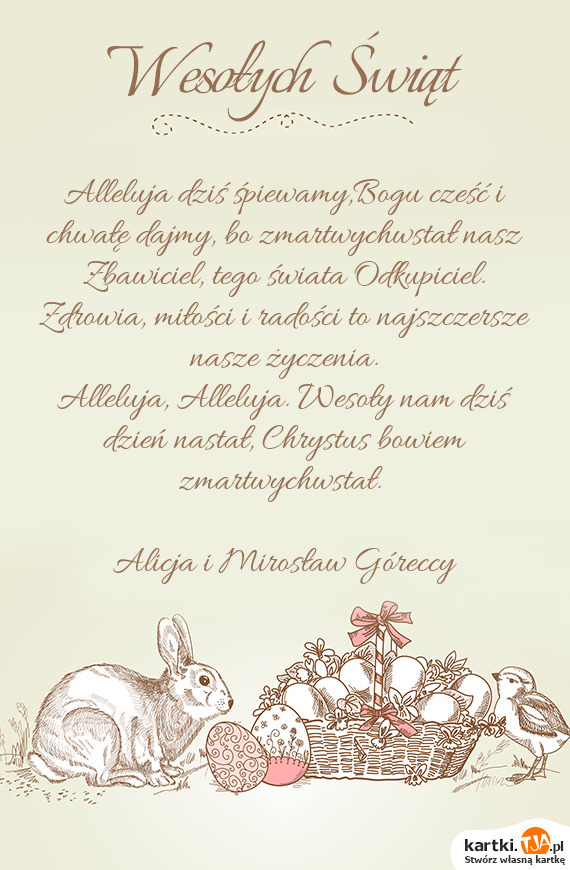 Wesołych Świąt
Alleluja dziś śpiewamy,Bogu cześć i
chwałę dajmy, bo zmartwychwstał nasz
Zbawiciel, tego świata Odkupiciel.
Zdrowia, miłości i radości to najszczersze
nasze życzenia.
Alleluja, Alleluja. Wesoły nam dziś
dzień nastał, Chrystus bowiem
zmartwychwstał.
Alicja i Mirosław Góreccy
kartki.TJA.pl
Stwórz własną kartkę